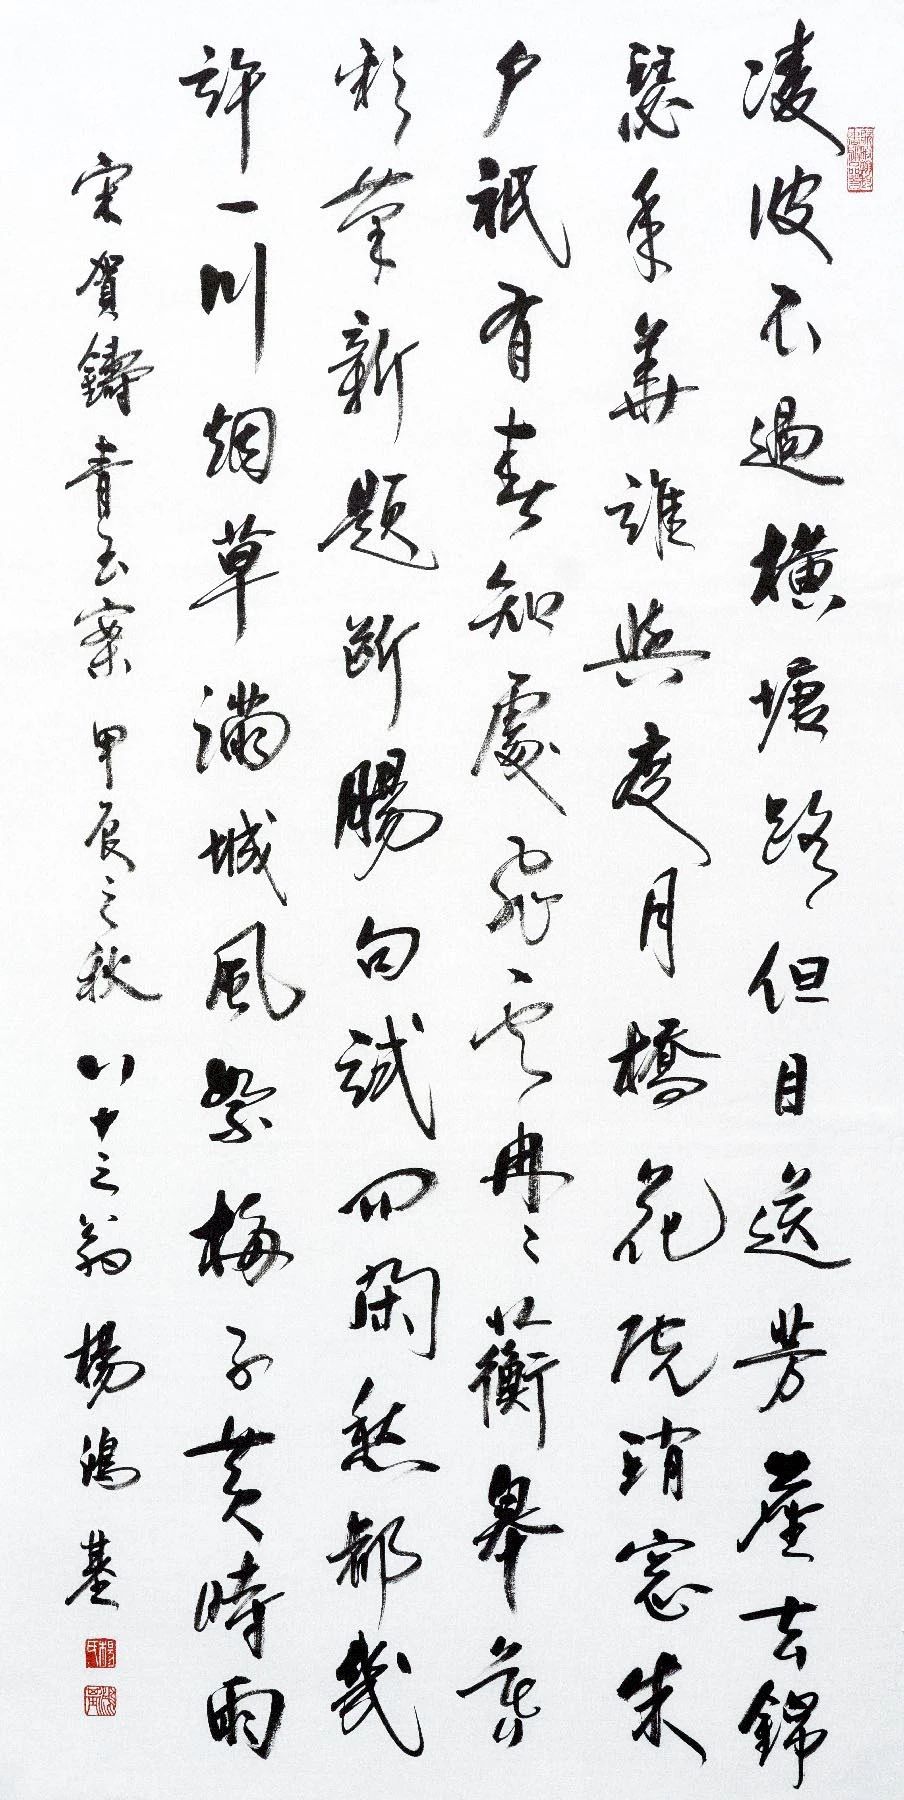 凌波不過橫塘路但目送芳塵去錦
瑟年華誰與度月橋花院瑣窓朱
戶祇有春知處飛雲冉〻蘅皋暮
彩筆新題斷腸句試問閑愁都幾
許一川烟草滿城風絮梅子黃時雨
宋賀鑄青玉案甲辰之秋八十三翁楊鴻基